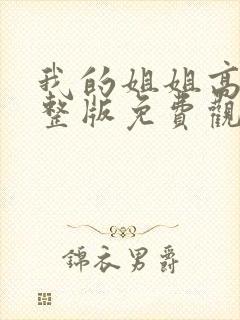 我的姐姐高
整版免費觀
錦衣男爵